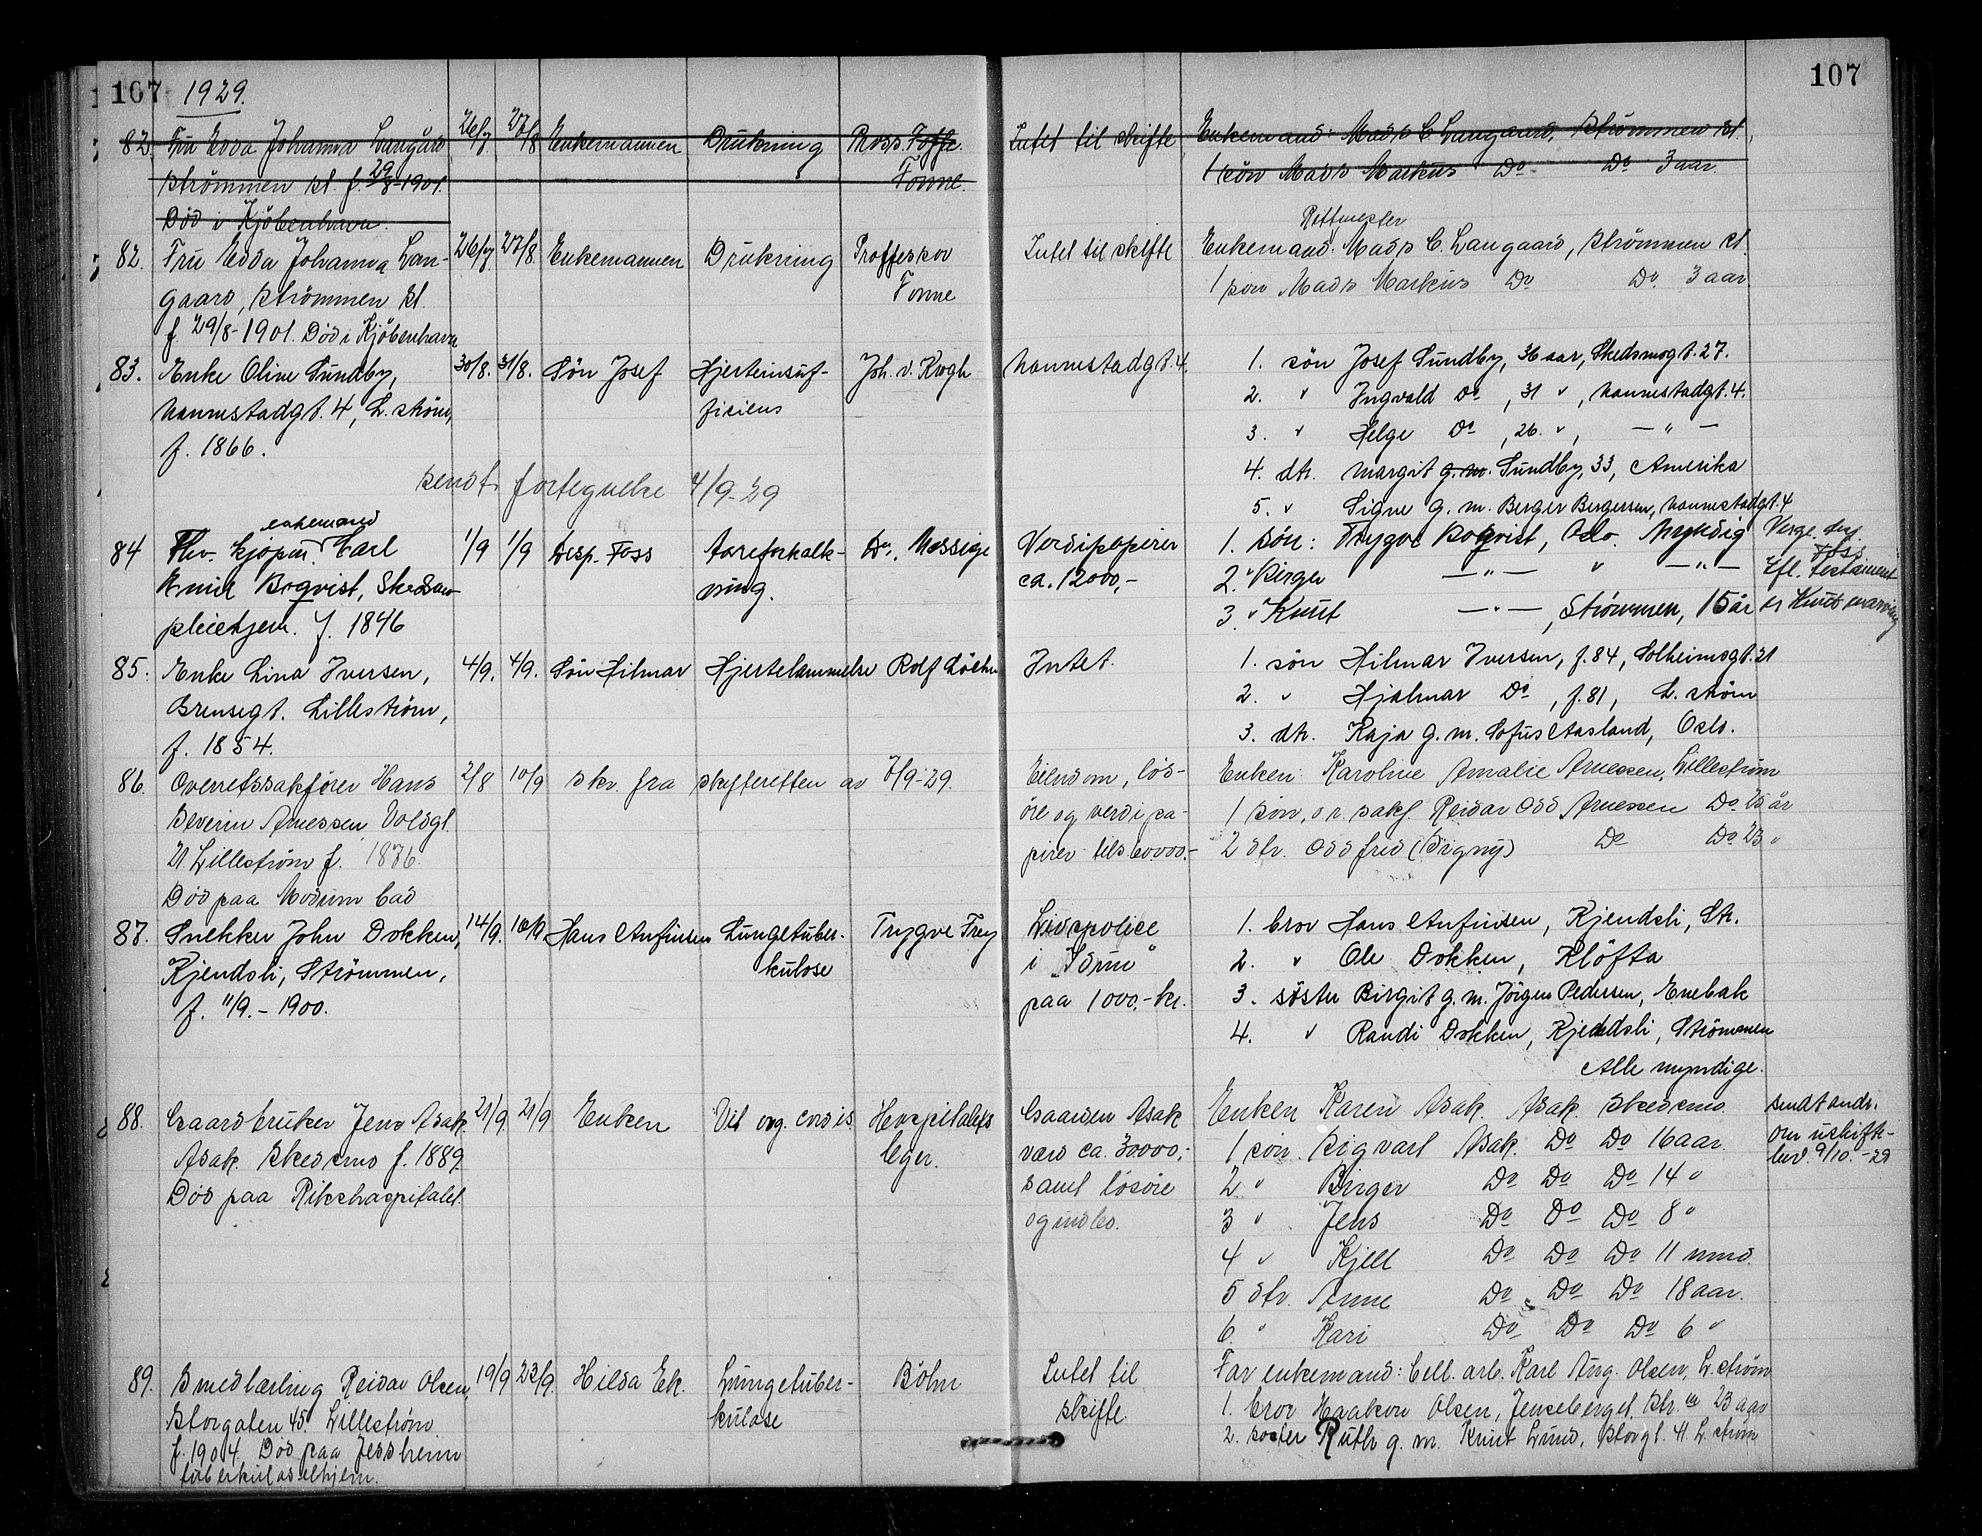 107 1929. 107
82. Fru Edda Johanna Langård 26/7 27/8 Enkemannen Drukning Prof. Tonne. Intet til skifte Enkemand: Mads C. Langaard, Strømmen st.
Strømmen st. f. 29/8-1901. 1 søn Mads Markus Do Do 3 aar.
Død i Kjøbenhavn.
82. Fru Edda Johanna Lan- 26/7 27/8. Enkemannen Drukning Proffessor Intet til skifte Enkemand: Rittmester Mads C. Langaard, Strømmen st.
gaard, Strømmen st. Tonne 1 søn Mads Markus Do Do 3 aar
f. 29/8-1901. Død i Kjøbenhavn
83. Enke Oline Sundby, 30/8. 31/8. Søn Josef Hjerteinsuf- Joh. v. Krogh Nannestadgt. 4. 1. søn Josef Sundby, 36 aar, Skedsmogt. 27.
Nannestadgt. 4, L.strøm, ficiens 2. " Ingvald Do, 31 ", Nannestadgt. 4.
f. 1866. 3. " Helge Do, 26. ", — " —
4. dtr. Margit g.m. Sundby, 33, Amerika
sendt fortegnelse 4/9-29
5. " Signe g. m. Berger Bergersen, Nannestadgt. 4
84 Fhv. kjøpm. enkemand Carl 1/9 1/9 Desp. Foss Aareforkalk- Dr. Messige Verdipapirer 1. søn: Trygve Boqvist, Oslo. Myndig Verge desp. Foss
Emil Boqvist, Skedsmo ning. ca. 12000,- 2. " Birger — " — " — " — Efl. testament
pleiehjem. f. 1846 3. " Knut — " —, Strømmen, 15 år
85. Enke Lina Iversen, 4/9. 4/9. Søn Hilmar Hjertelammelse Rolf Løchen Intet. 1. søn Hilmar Iversen, f. 84, Solheimsgt. 21
Brensegt. Lillestrøm, 2. " Hjalmar Do, f. 81, L. strøm
f. 1854. 3. dtr. Kaja g. m. Sofus Aasland, Oslo.
86. Overretssakfører Hans 2/8 10/9 skr. fra skifteretten av 7/9-29. Eiendom, løs- Enken Karoline Amalie Arnessen, Lillestrøm
Severin Arnessen Voldgt. øre og verdipa- 1 søn, o.r. sakf. Reidar Odd Arnessen Do år
21 Lillestrøm f. 1876. pirer 2 dtr. Oddfrid (Signy) Do Do 23 "
Død paa Modum bad
87. Snekker John Dokken, 14/9. 16/9 Hans Anfinsen Lungetuber- Trygve Frey Livspolice 1. bror Hans Anfinsen, Kjendsli, Str.
Kjendsli, Strømmen, kulose i "Idun" 2. " Ole Dokken, Kløfta
f. 11/9. - 1900. paa 1000,- kr. 3. søster Birgit g. m. Jörgen Pedersen, Enebak
4. " Randi Dokken, Kjendsli, Strømmen
Alle myndige.
88. Gaardbruker Jens Asak 21/9 21/9 Enken Vit. org. cordis. Hospitalets Gaarden Asak Enken Karen Asak. Asak. Skedsmo. sendt andr.
Asak. Skedsmo f. 1889. leger. værd ca. 30000,- 1 søn. Sigvart Asak. Do Do 16 aar. om uskifte-
Død paa Rikshospitalet. samt løsøre 2 " Birger Do Do Do 14 " bev. 9/10.-29
og indbo. 3 " Jens Do Do Do 8 "
4 " Kjell Do Do Do 11 mnd.
5 dtr. Anne Do Do Do 18 aar.
6. " Kari Do Do Do 6 "
89. Smedlærling Reidar Olsen, 19/9 23/9. Hilda Ek. Lungetuber- Böhn Intet til Far enkemand: cell. arb. Karl Aug. Olsen, L. strøm
Storgaten 45. Lillestrøm. kulose skifte. 1. bror Haakon Olsen, Jenseberget. Str. m 23 aar
f. 1904. Død paa Jessheim 2. søster Ruth g. m. Knut Lund, Storgt. 41. L. strøm
tuberkulosehjem.